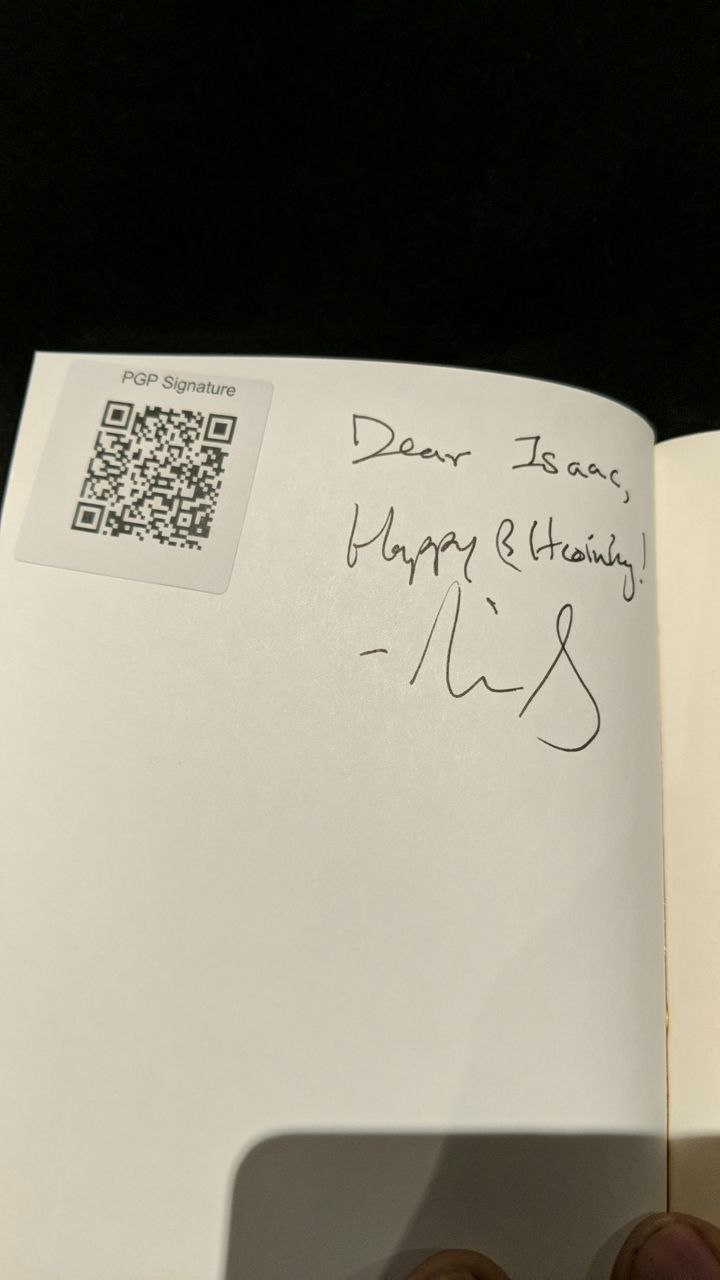 PGP Signature
Dear Isaac,
Happy Bitcoining!